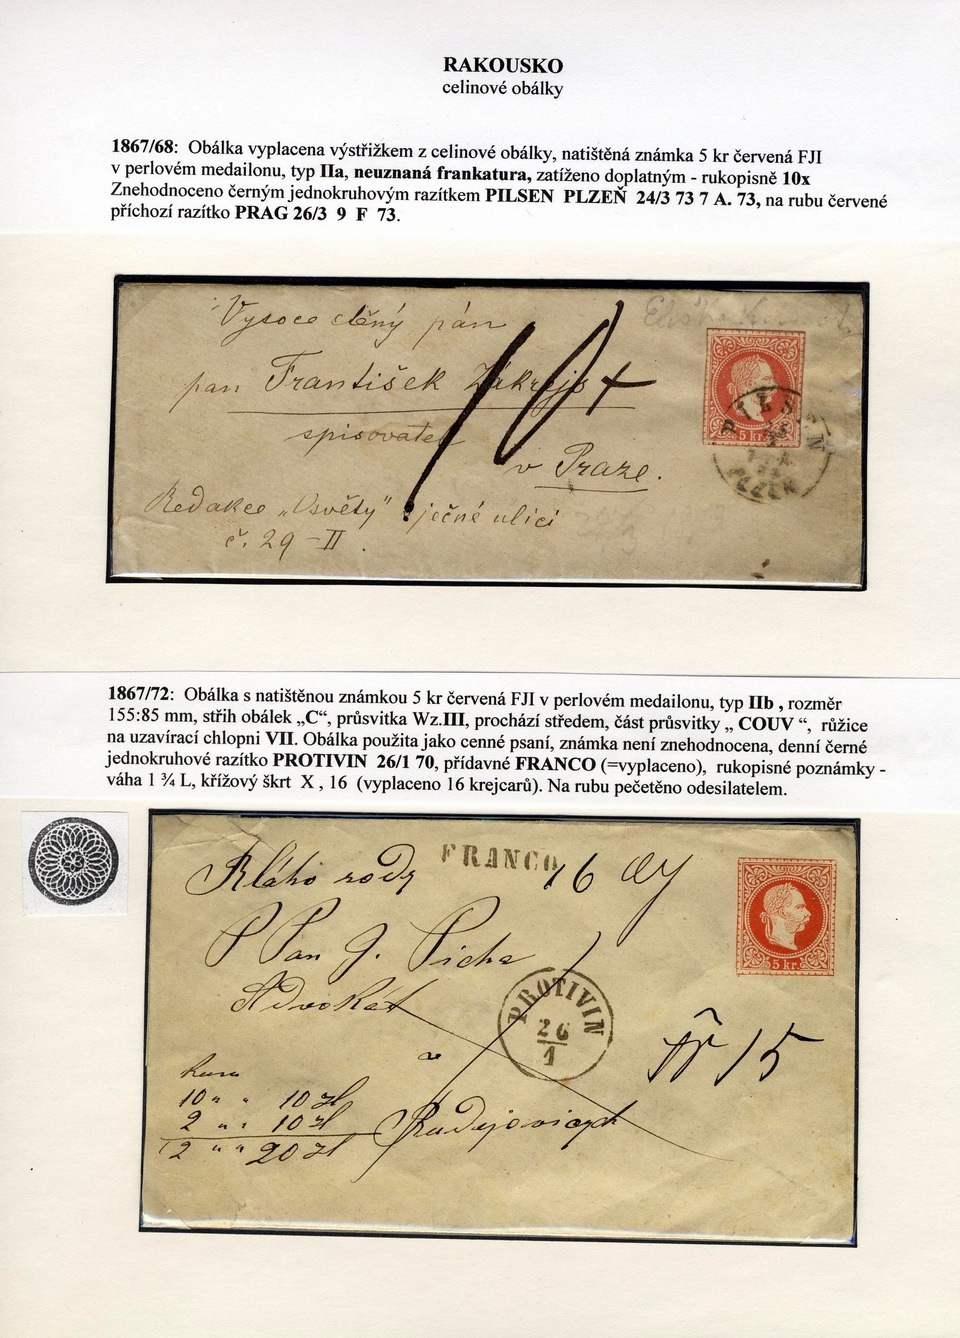 RAKOUSKO
celinové obálky
1867/68: Obálka vyplacena výstřižkem z celinové obálky, natištěná známka 5 kr červená FJI
v perlovém medailonu, typ IIa, neuznaná frankatura, zatíženo doplatným - rukopisně 10x
Znehodnoceno černým jednokruhovým razítkem PILSEN PLZEŇ 24/3 73 7 A. 73, na rubu červené
příchozí razítko PRAG 26/3 9 F 73.
Vysoce ctěný pán
pan František Zákrejs
10 x
5 kr.
PILSEN
PLZEŇ
spisovatel
v Praze.
Redakce „Osvěty" ječné ulici
č. 29 - II.
1867/72: Obálka s natištěnou známkou 5 kr červená FJI v perlovém medailonu, typ IIb , rozměr
155:85 mm, střih obálek „C", průsvitka Wz.III, prochází středem, část průsvitky „ COUV ", růžice
na uzavírací chlopni VII. Obálka použita jako cenné psaní, známka není znehodnocena, denní černé
jednokruhové razítko PROTIVIN 26/1 70, přídavné FRANCO (=vyplaceno), rukopisné poznámky -
váha 1 ¾ L, křížový škrt X , 16 (vyplaceno 16 krejcarů). Na rubu pečetěno odesilatelem.
FRANCO
16
5 kr.
P Pan J.
Advokát
PROTIVIN
26
1
15
10 " " 10 zl
2 " " 10 zl
12 " " 20 zl